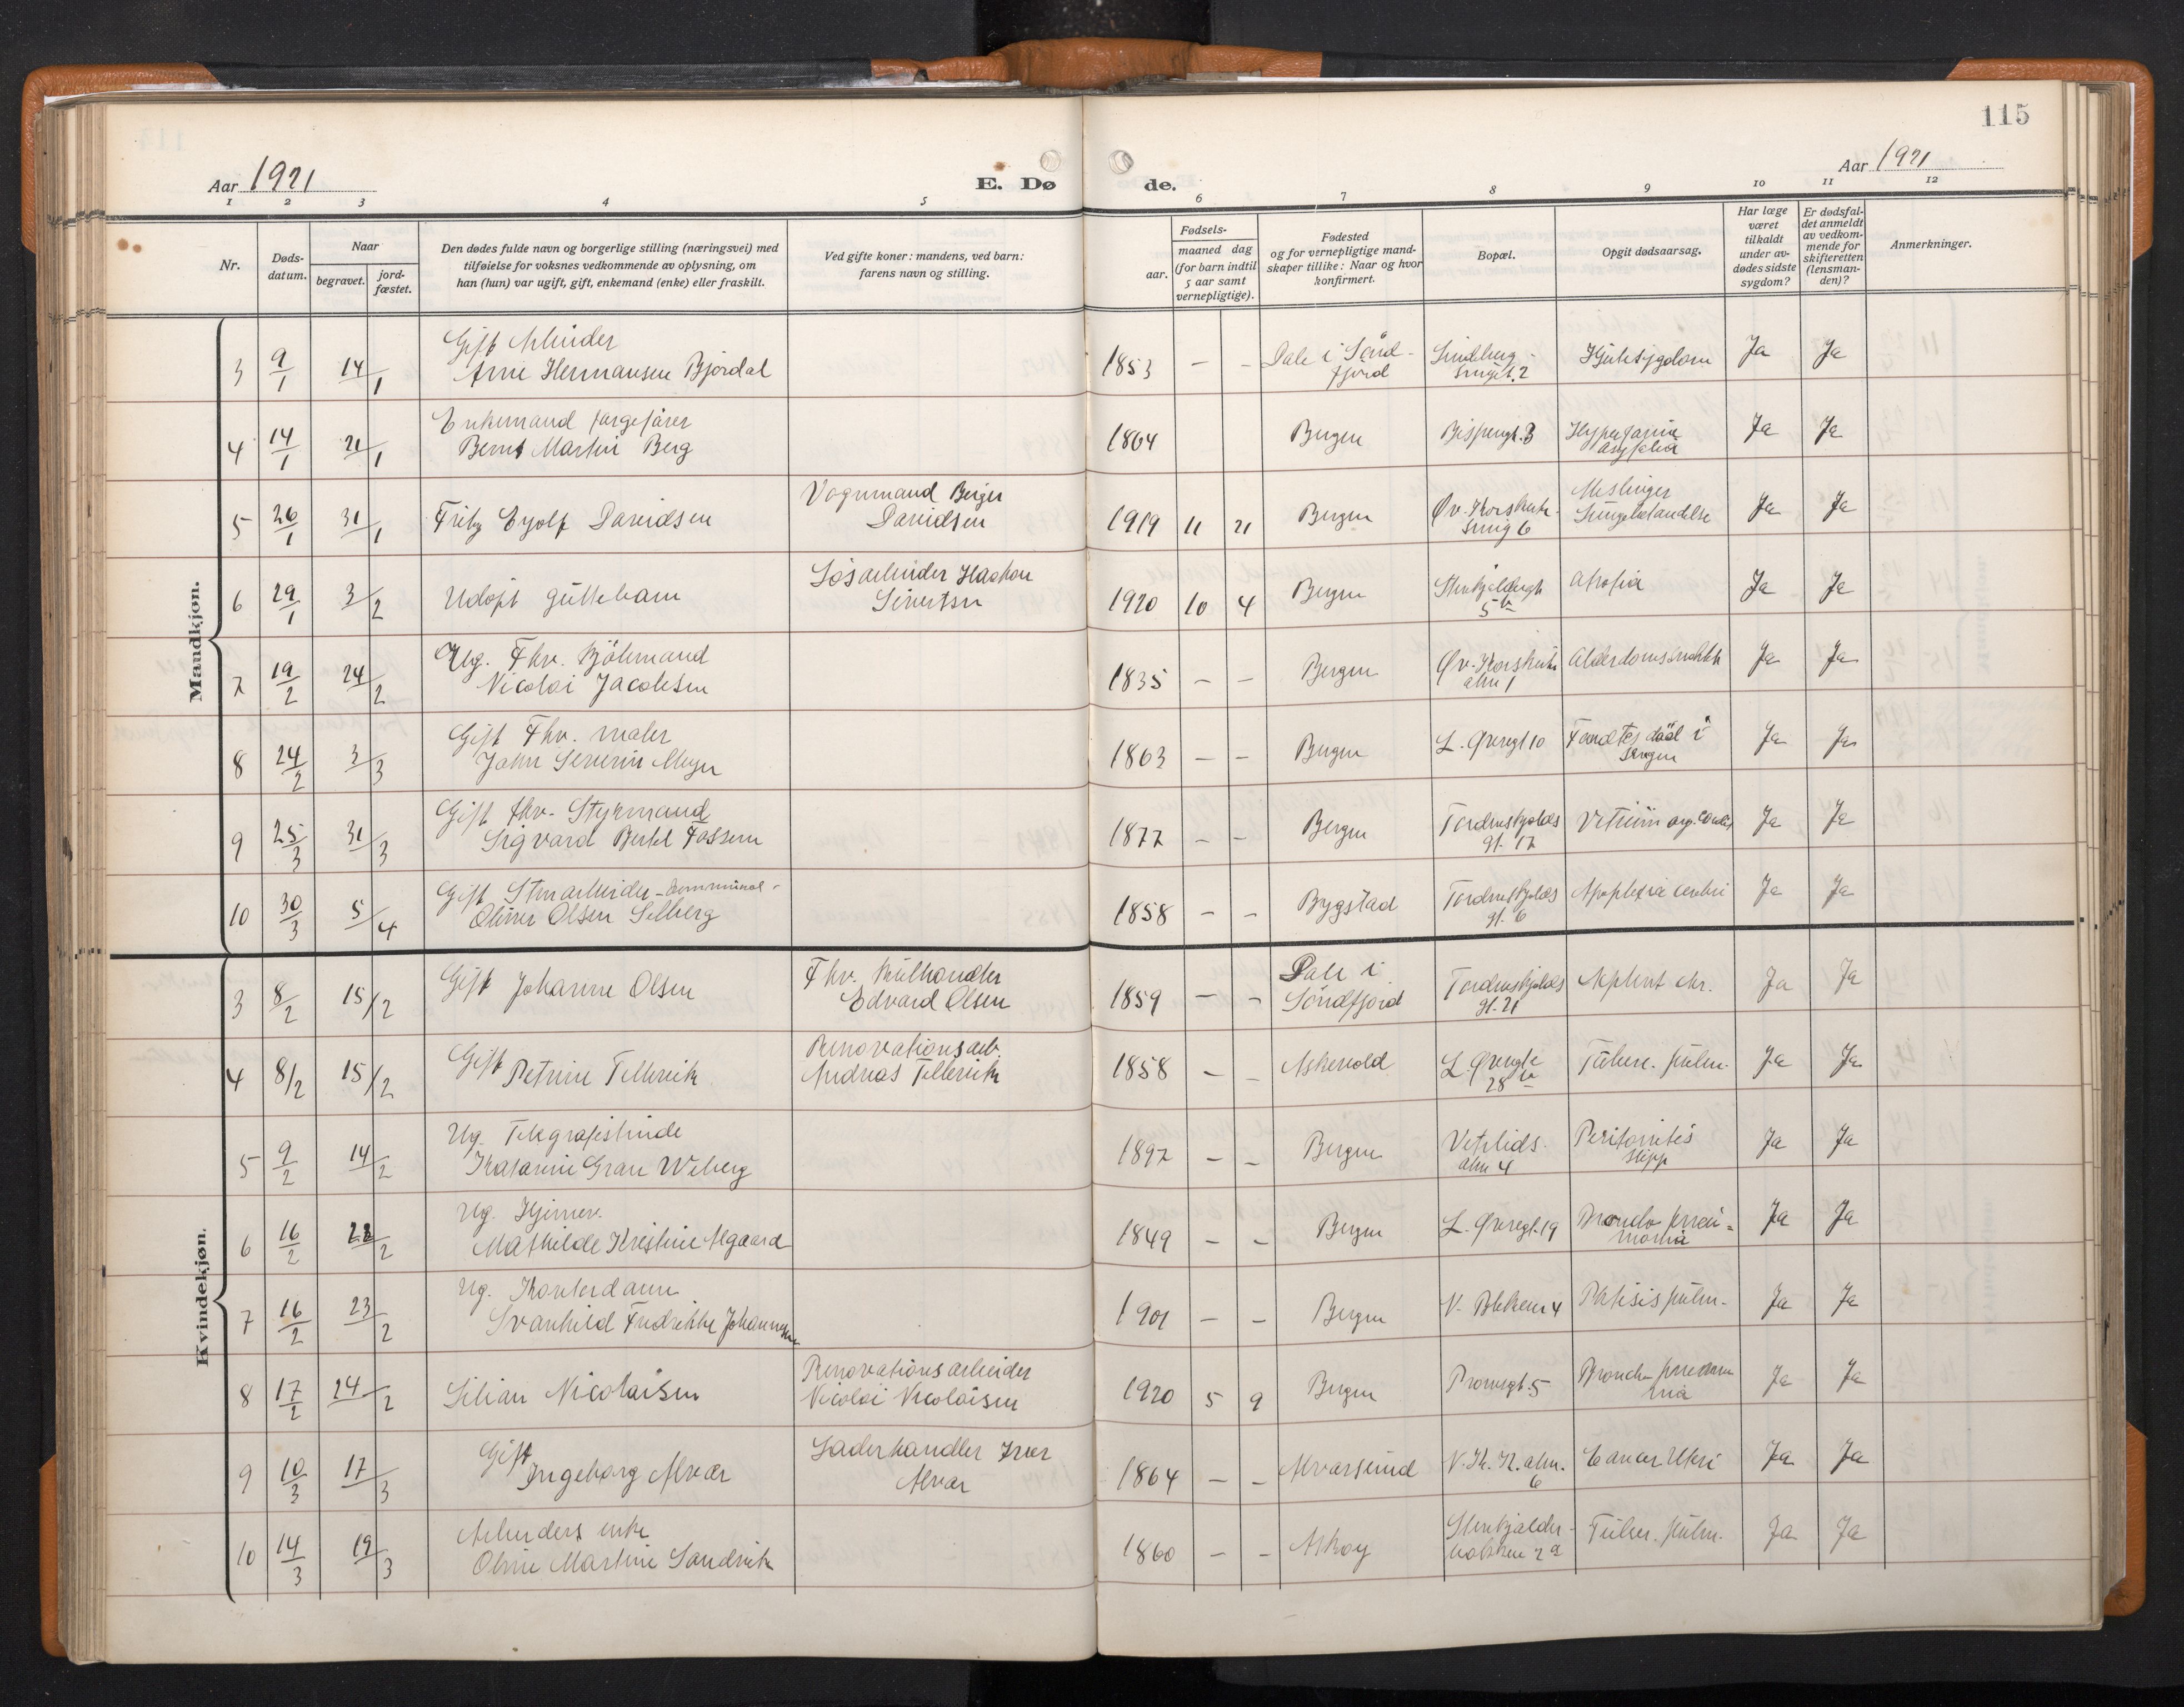 115
Aar 1921
E. Dø
de.
Aar 1921
1 2 3 4 5 6 7 8 9 10 11 12
Nr.
Døds-
datum.
Naar
begravet.
jord-
fæstet.
Den dødes fulde navn og borgerlige stilling (næringsvei) med
tilføielse for voksnes vedkommende av oplysning, om
han (hun) var ugift, gift, enkemand (enke) eller fraskilt.
Ved gifte koner: mandens, ved barn:
farens navn og stilling.
Fødsels-
aar.
maaned dag
(for barn indtil
5 aar samt
vernepligtige).
Fødested
og for vernepligtige mand-
skaper tillike: Naar og hvor
konfirmert.
Bopæl.
Opgit dødsaarsag.
Har læge
været
tilkaldt
under av-
dødes sidste
sygdom?
Er dødsfal-
det anmeldt
av vedkom-
mende for
skifteretten
(lensman-
den)?
Anmerkninger.
Mandkjøn.
Gift Arbeider
3 9/1 14/1 Arne Hermansen Bjordal 1853 – – Dale i Sönd-
fjord Ja Ja
Enkemand
4 14/1 21/1 Bernt Martin Berg 1864 Bergen Bispengt. 3 Ja Ja
Vognmand Berger
5 26/1 31/1 Fritz Eyolf Davidsen Davidsen 1919 11 21 Bergen Øv. Korskirke-
smug 6 Meslinger
Lungebetændelse Ja Ja
Haakon
6 29/1 3/2 Udöpt guttebarn Sivertsen 1920 10 4 Bergen Atrofia Ja Ja
Ug. Fhv. Kjöbmand
7 19/2 24/2 Nicolai Jacobsen 1835 – – Bergen Øv. Korskirke
alm 1 Alderdomssvakhet Ja Ja
Gift Fhv. maler
8 24/2 3/3 John Severin Meyer 1863 – – Bergen L. Øvregt 10 Fandtes död i
sengen Ja Ja
Gift fhv. Styrmand
9 25/3 31/3 Sigvard Bertel Fossem 1877 – – Bergen Tordenskjolds
gt. 17 Vitium org. cordis Ja Ja
Gift Stenarbeider - kommunal -
10 30/3 5/4 Oliver Olsen Selberg 1858 – – Bygstad Tordenskjolds
gt. 6 Apoplexia cerebri Ja Ja
Kvindekjøn.
Fhv. Kulhandler
3 8/2 15/2 Gift Johanne Olsen Edvard Olsen 1859 – – Dale i
Söndfjord Tordenskjolds
gt. 21 Nephrit chr. Ja Ja
Renovationsarb.
4 8/2 15/2 Gift Petrine Tellevik Andreas Tellevik 1858 – – Askevold L. Øvregt
28 b Tuberc. pulm. Ja Ja
Ug. Telegrafistinde
5 9/2 14/2 Katarine Gran Wiberg 1897 – – Bergen Vetrlids.
alm 4 Peritonites
supp Ja Ja
Ug. Hjemmev.
6 16/2 22/2 Mathilde Kristine Algaard 1849 – – Bergen L. Øvregt. 19 Broncho pneu-
monia Ja Ja
Ug. Kontordame
7 16/2 23/2 Svanhild Fredrikke Johannesen 1901 – – Bergen N. Blekevn 4 Phtisis pulm. Ja Ja
Renovationsarbeider
8 17/2 24/2 Lilian Nicolaisen Nicolai Nicolaisen 1920 5 9 Bergen Prahlsgt. 5 Broncho pneumo
nia Ja Ja
Gift Læderhandler Iver
9 10/3 17/3 Ingeborg Alvær Alvær 1864 – – Alværsund N. K. K. alm.
6 Cancer Uteri Ja Ja
Arbeiders enke
10 14/3 19/3 Oline Martine Sandvik 1860 – – Askøy Stenkjelder-
bakken 2 a Tuberc. pulm. Ja Ja